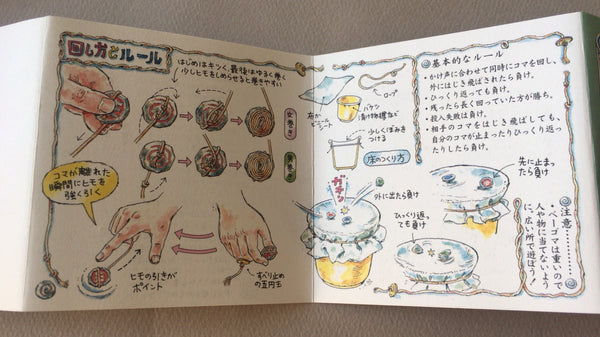 回しかたとルール
はじめはキツく、最後はゆるく巻く
少しヒモをしめらせると巻きやすい
女巻き
男巻き
コマが離れた
瞬間にヒモを
強く引く
ヒモの引きが
ポイント
すべり止め
の五円玉
布か
ビニール
シート
ロープ
バケツ
漬け物樽など
少しくぼみを
つける
床のつくり方
ガチン
外に出たら負け
ひっくり返っ
ても負け
先に止まっ
たら負け
基本的なルール
・かけ声に合わせて同時にコマを回し、
外にはじき飛ばされたら負け。
・ひっくり返っても負け。
・残ったら長く回っていた方が勝ち。
・投入失敗は負け。
・相手のコマをはじき飛ばしても、
自分のコマが止まったりひっくり返っ
たりしたら負け。
注意…………
・ベーゴマは重いので
人や物に当てないよう
に、広い所で遊ぼう!